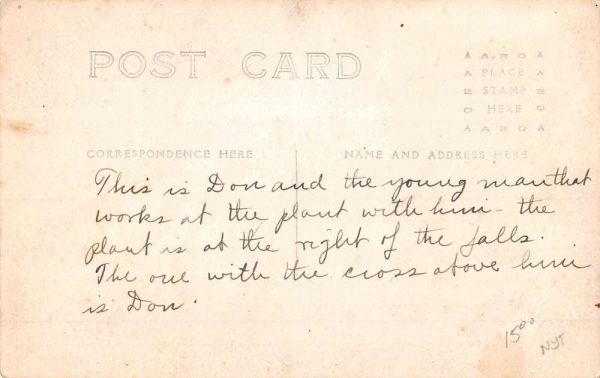 POST CARD
AZO
PLACE
STAMP
HERE
AZO
CORRESPONDENCE HERE
NAME AND ADDRESS HERE
This is Don and the young man that
works at the plant with him - the
plant is at the right of the falls.
The one with the cross above him
is Don.
15⁰⁰